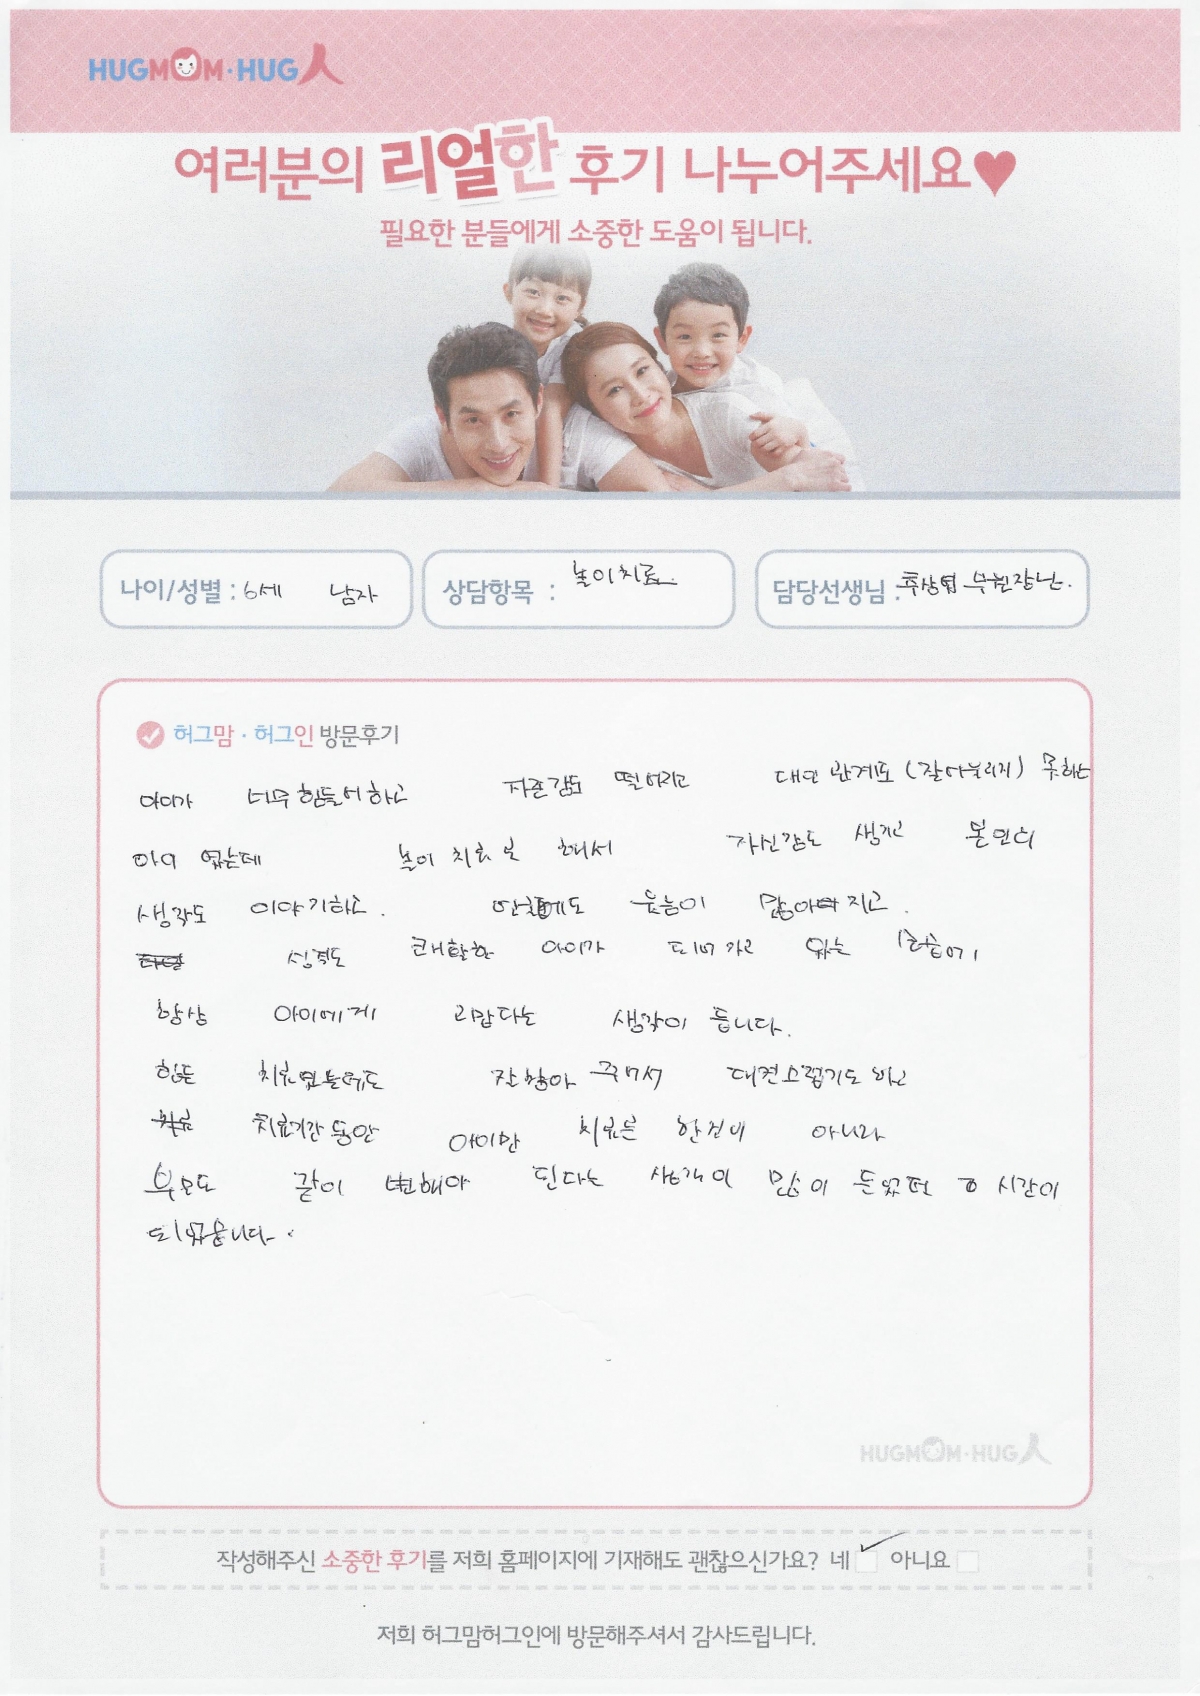 HUGMOM·HUG人
여러분의 리얼한 후기 나누어주세요♥
필요한 분들에게 소중한 도움이 됩니다.
나이/성별 : 6세 남자
상담항목 : 놀이치료
담당선생님 : 부원장님.
허그맘·허그인 방문후기
아이가 너무 힘들어 하고 자존감도 떨어리고 대인 관계도 (잘 어울리지) 못하는
아이 였는데 놀이 치료로 해서 자신감도 생기고 본인의
생각도 이야기하고. 웃음이 많아 지고.
성격도 쾌활한 아이가 되어 가고 있는 모습에
항상 아이에게 고맙다는 생각이 듭니다.
힘든 치료였을텐데도 잘 참아 주어서 대견스럽기도 하고
치료기간 동안 아이만 치료를 한것이 아니라
부모도 같이 변해야 된다는 생각이 많이 들었던 시간이
되었습니다.
HUGMOM·HUG人
작성해주신 소중한 후기를 저희 홈페이지에 기재해도 괜찮으신가요? 네 아니요
저희 허그맘허그인에 방문해주셔서 감사드립니다.